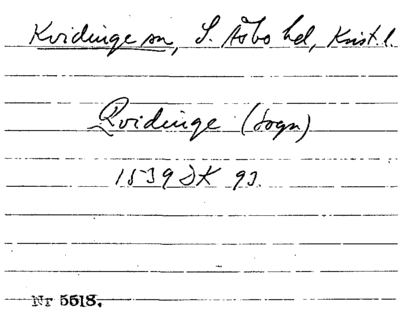 Kvidinge sn, S. Åsbo hd, Krist.l.
Qvidinge (sogn)
1539 DK 93.
Nr 5518.